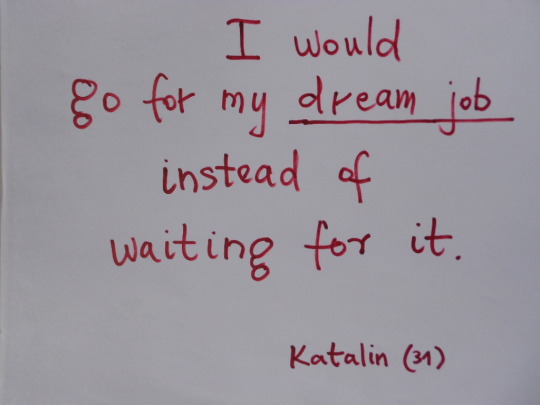 I would
go for my dream job
instead of
waiting for it.
Katalin (31)